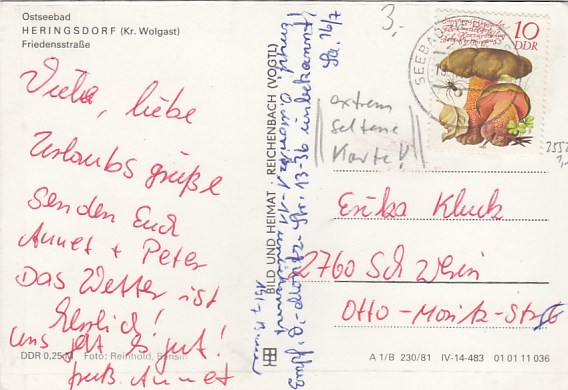 Ostseebad
HERINGSDORF (Kr. Wolgast)
Friedensstraße
Viele, liebe
Urlaubs grüße
senden Euch
Annet + Peter
Das Wetter ist
Herrlich!
uns geht es gut!
Gruß Annet
DDR 0,25 M Foto: Reinhold, Bansin
BILD UND HEIMAT · REICHENBACH (VOGTL)
Empf. O.-Moritz-Str. 13-36 unbekannt!
16/7
3,-
extrem
seltene
Karte!
SEEBAD HERINGSDORF
10
DDR
Erika Kluck
2760 Schwerin
Otto-Moritz-Str
A 1/B 230/81 IV-14-483 01 01 11 036